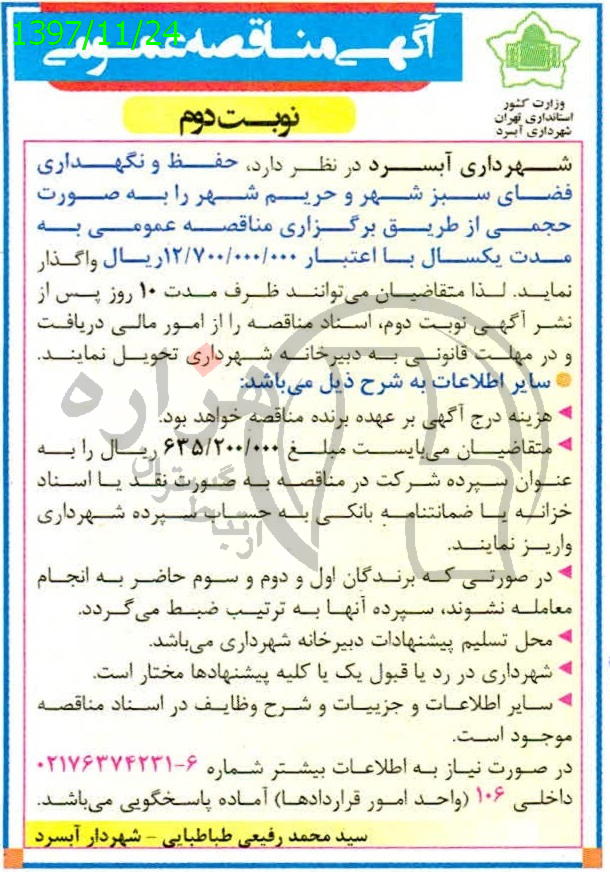 1397/11/24
آگهی مناقصه عمومی
وزارت کشور
استانداری تهران
شهرداری آبسرد
نوبت دوم
شهرداری آبسرد در نظر دارد، حفظ و نگهداری
فضای سبز شهر و حریم شهر را به صورت
حجمی از طریق برگزاری مناقصه عمومی به
مدت یکسال با اعتبار ۱۲/۷۰۰/۰۰۰/۰۰۰ریال واگذار
نماید. لذا متقاضیان می‌توانند ظرف مدت ۱۰ روز پس از
نشر آگهی نوبت دوم، اسناد مناقصه را از امور مالی دریافت
و در مهلت قانونی به دبیرخانه شهرداری تحویل نمایند.
سایر اطلاعات به شرح ذیل می‌باشد:
هزینه درج آگهی بر عهده برنده مناقصه خواهد بود.
متقاضیان می‌بایست مبلغ ۶۳۵/۲۰۰/۰۰۰ ریال را به
عنوان سپرده شرکت در مناقصه به صورت نقد یا اسناد
خزانه یا ضمانتنامه بانکی به حساب سپرده شهرداری
واریز نمایند.
در صورتی که برندگان اول و دوم و سوم حاضر به انجام
معامله نشوند، سپرده آنها به ترتیب ضبط می‌گردد.
محل تسلیم پیشنهادات دبیرخانه شهرداری می‌باشد.
شهرداری در رد یا قبول یک یا کلیه پیشنهادها مختار است.
سایر اطلاعات و جزییات و شرح وظایف در اسناد مناقصه
موجود است.
در صورت نیاز به اطلاعات بیشتر شماره ۶-۰۲۱۷۶۳۷۴۲۳۱
داخلی ۱۰۶ (واحد امور قراردادها) آماده پاسخگویی می‌باشد.
سید محمد رفیعی طباطبایی - شهردار آبسرد
هزاره
گستران
ارتباط